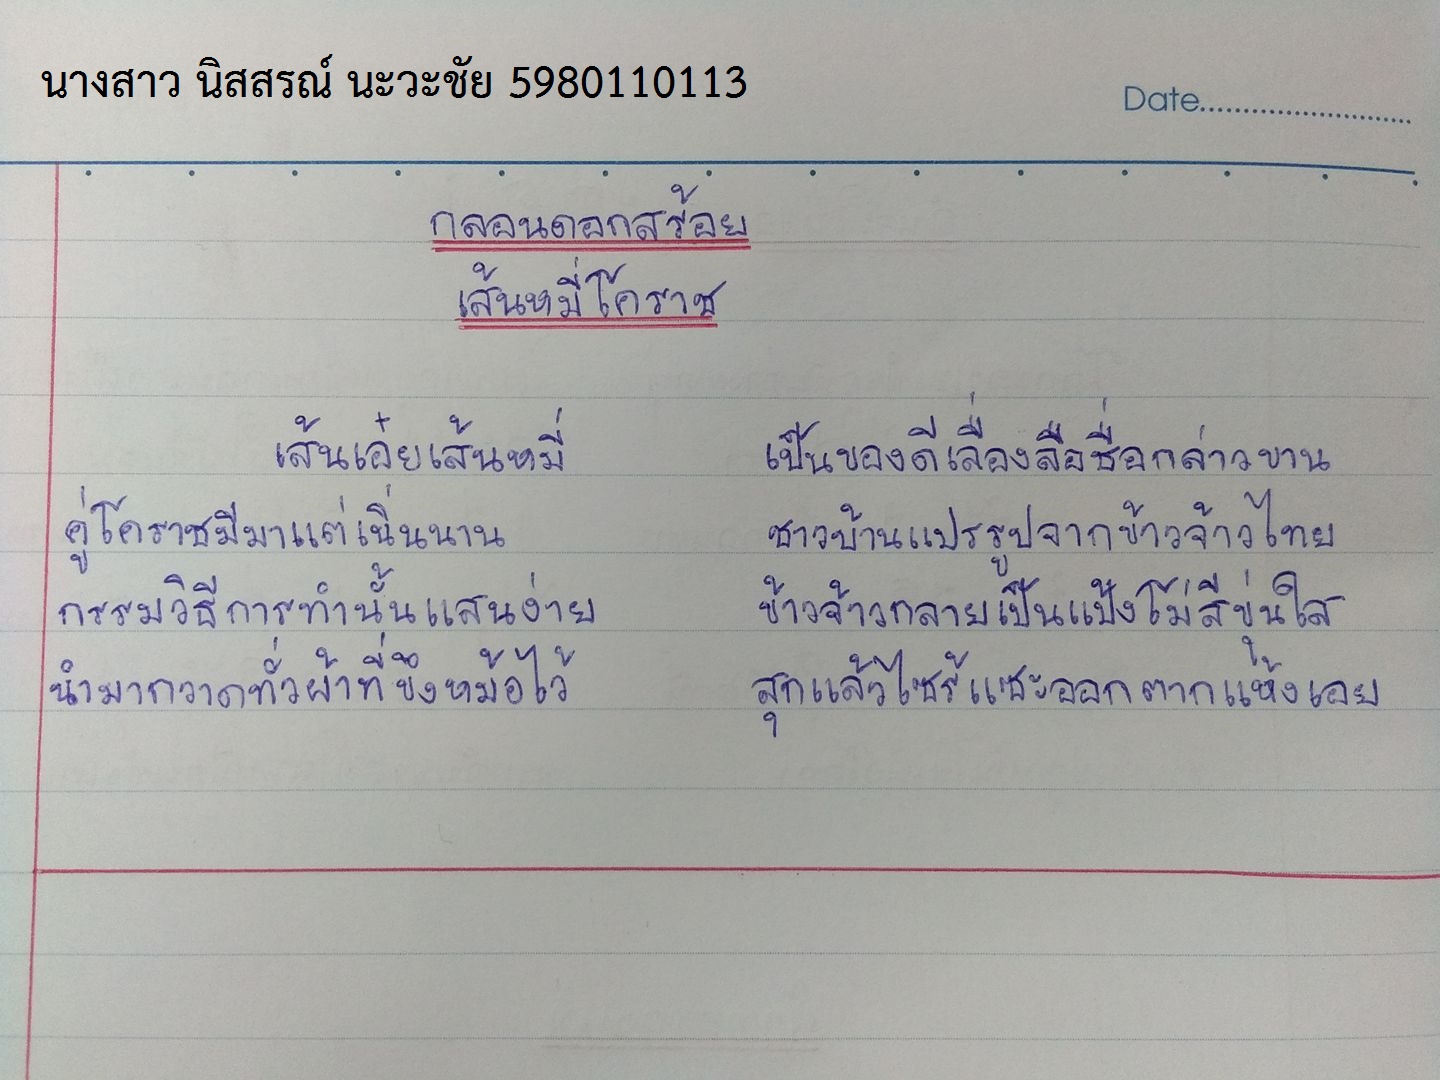 นางสาว นิสสรณ์ นะวะชัย 5980110113
Date
กลอนดอกสร้อย
เส้นหมี่โคราช
เส้นเอ๋ยเส้นหมี่ เป็นของดีเลื่องลือชื่อกล่าวขาน
คู่โคราชมีมาแต่เนิ่นนาน ชาวบ้านแปรรูปจากข้าวจ้าวไทย
กรรมวิธีการทำนั้นแสนง่าย ข้าวจ้าวกลายเป็นแป้งโม่สีขุ่นใส
นำมากวาดทั่วผ้าที่ขึงหม้อไว้ สุกแล้วไซร้แซะออกตากแห้งเอย